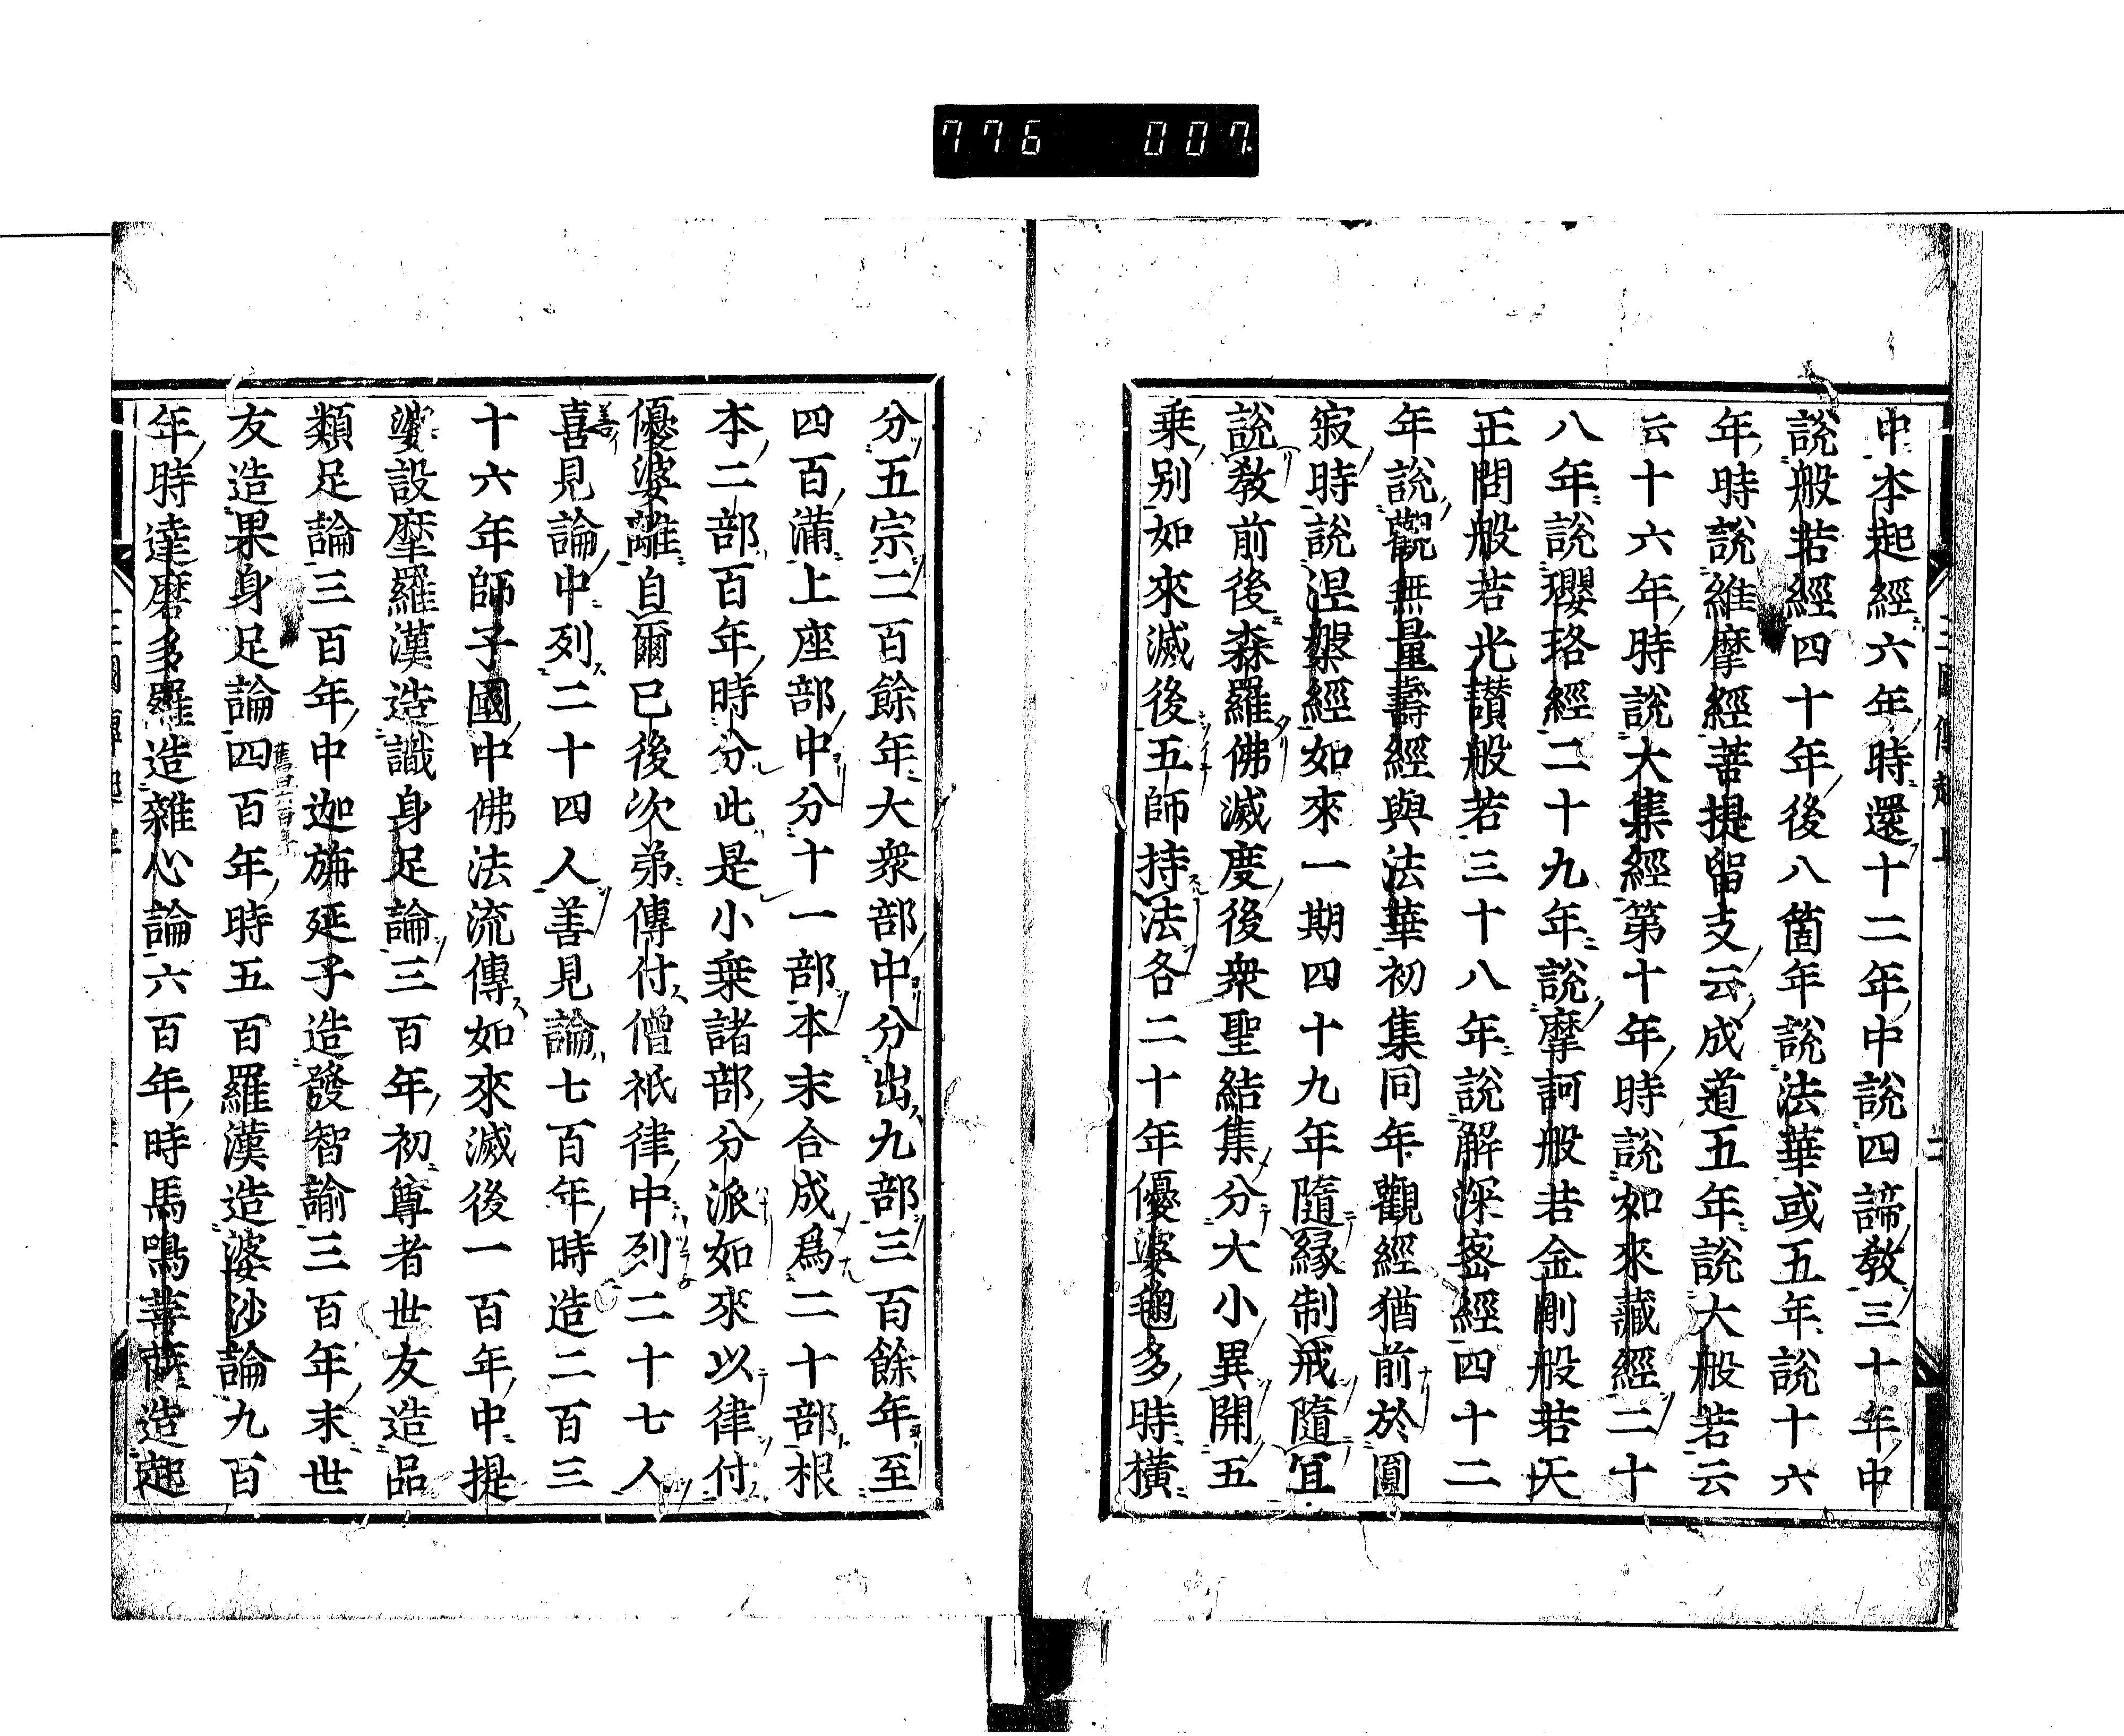 776 007
中本起經六年時還十二年中說四諦教三十年中
說般若經四十年後八箇年說法華或五年說十六
年時說維摩經菩提留支云成道五年說大般若云
云十六年時說大集經第十年時說如來藏經二十
八年說瓔珞經二十九年說摩訶般若金剛般若天
王問般若光讃般若三十八年說解深密經四十二
年說觀無量壽經與法華初集同年觀經猶前於圓
寂時說涅槃經如來一期四十九年隨緣制戒隨宜
說教前後森羅佛滅度後衆聖結集分大小異開五
乗別如來滅後五師持法各二十年優婆毱多時橫
分五宗二百餘年大衆部中分出九部三百餘年至
四百滿上座部中分十一部本末合成爲二十部根
本二部百年時分此是小乗諸部分派如來以律付
優婆離自爾已後次第傳付僧祇律中列二十七人
喜見論中列二十四人善見論七百年時造二百三
善イ
十六年師子國中佛法流傳如來滅後一百年中提
婆設摩羅漢造識身足論三百年初尊者世友造品
類足論三百年中迦旃延子造發智論三百年末世
友造果身足論四百年時五百羅漢造婆沙論九百
年時達磨多羅造雜心論六百年時馬鳴菩薩造起